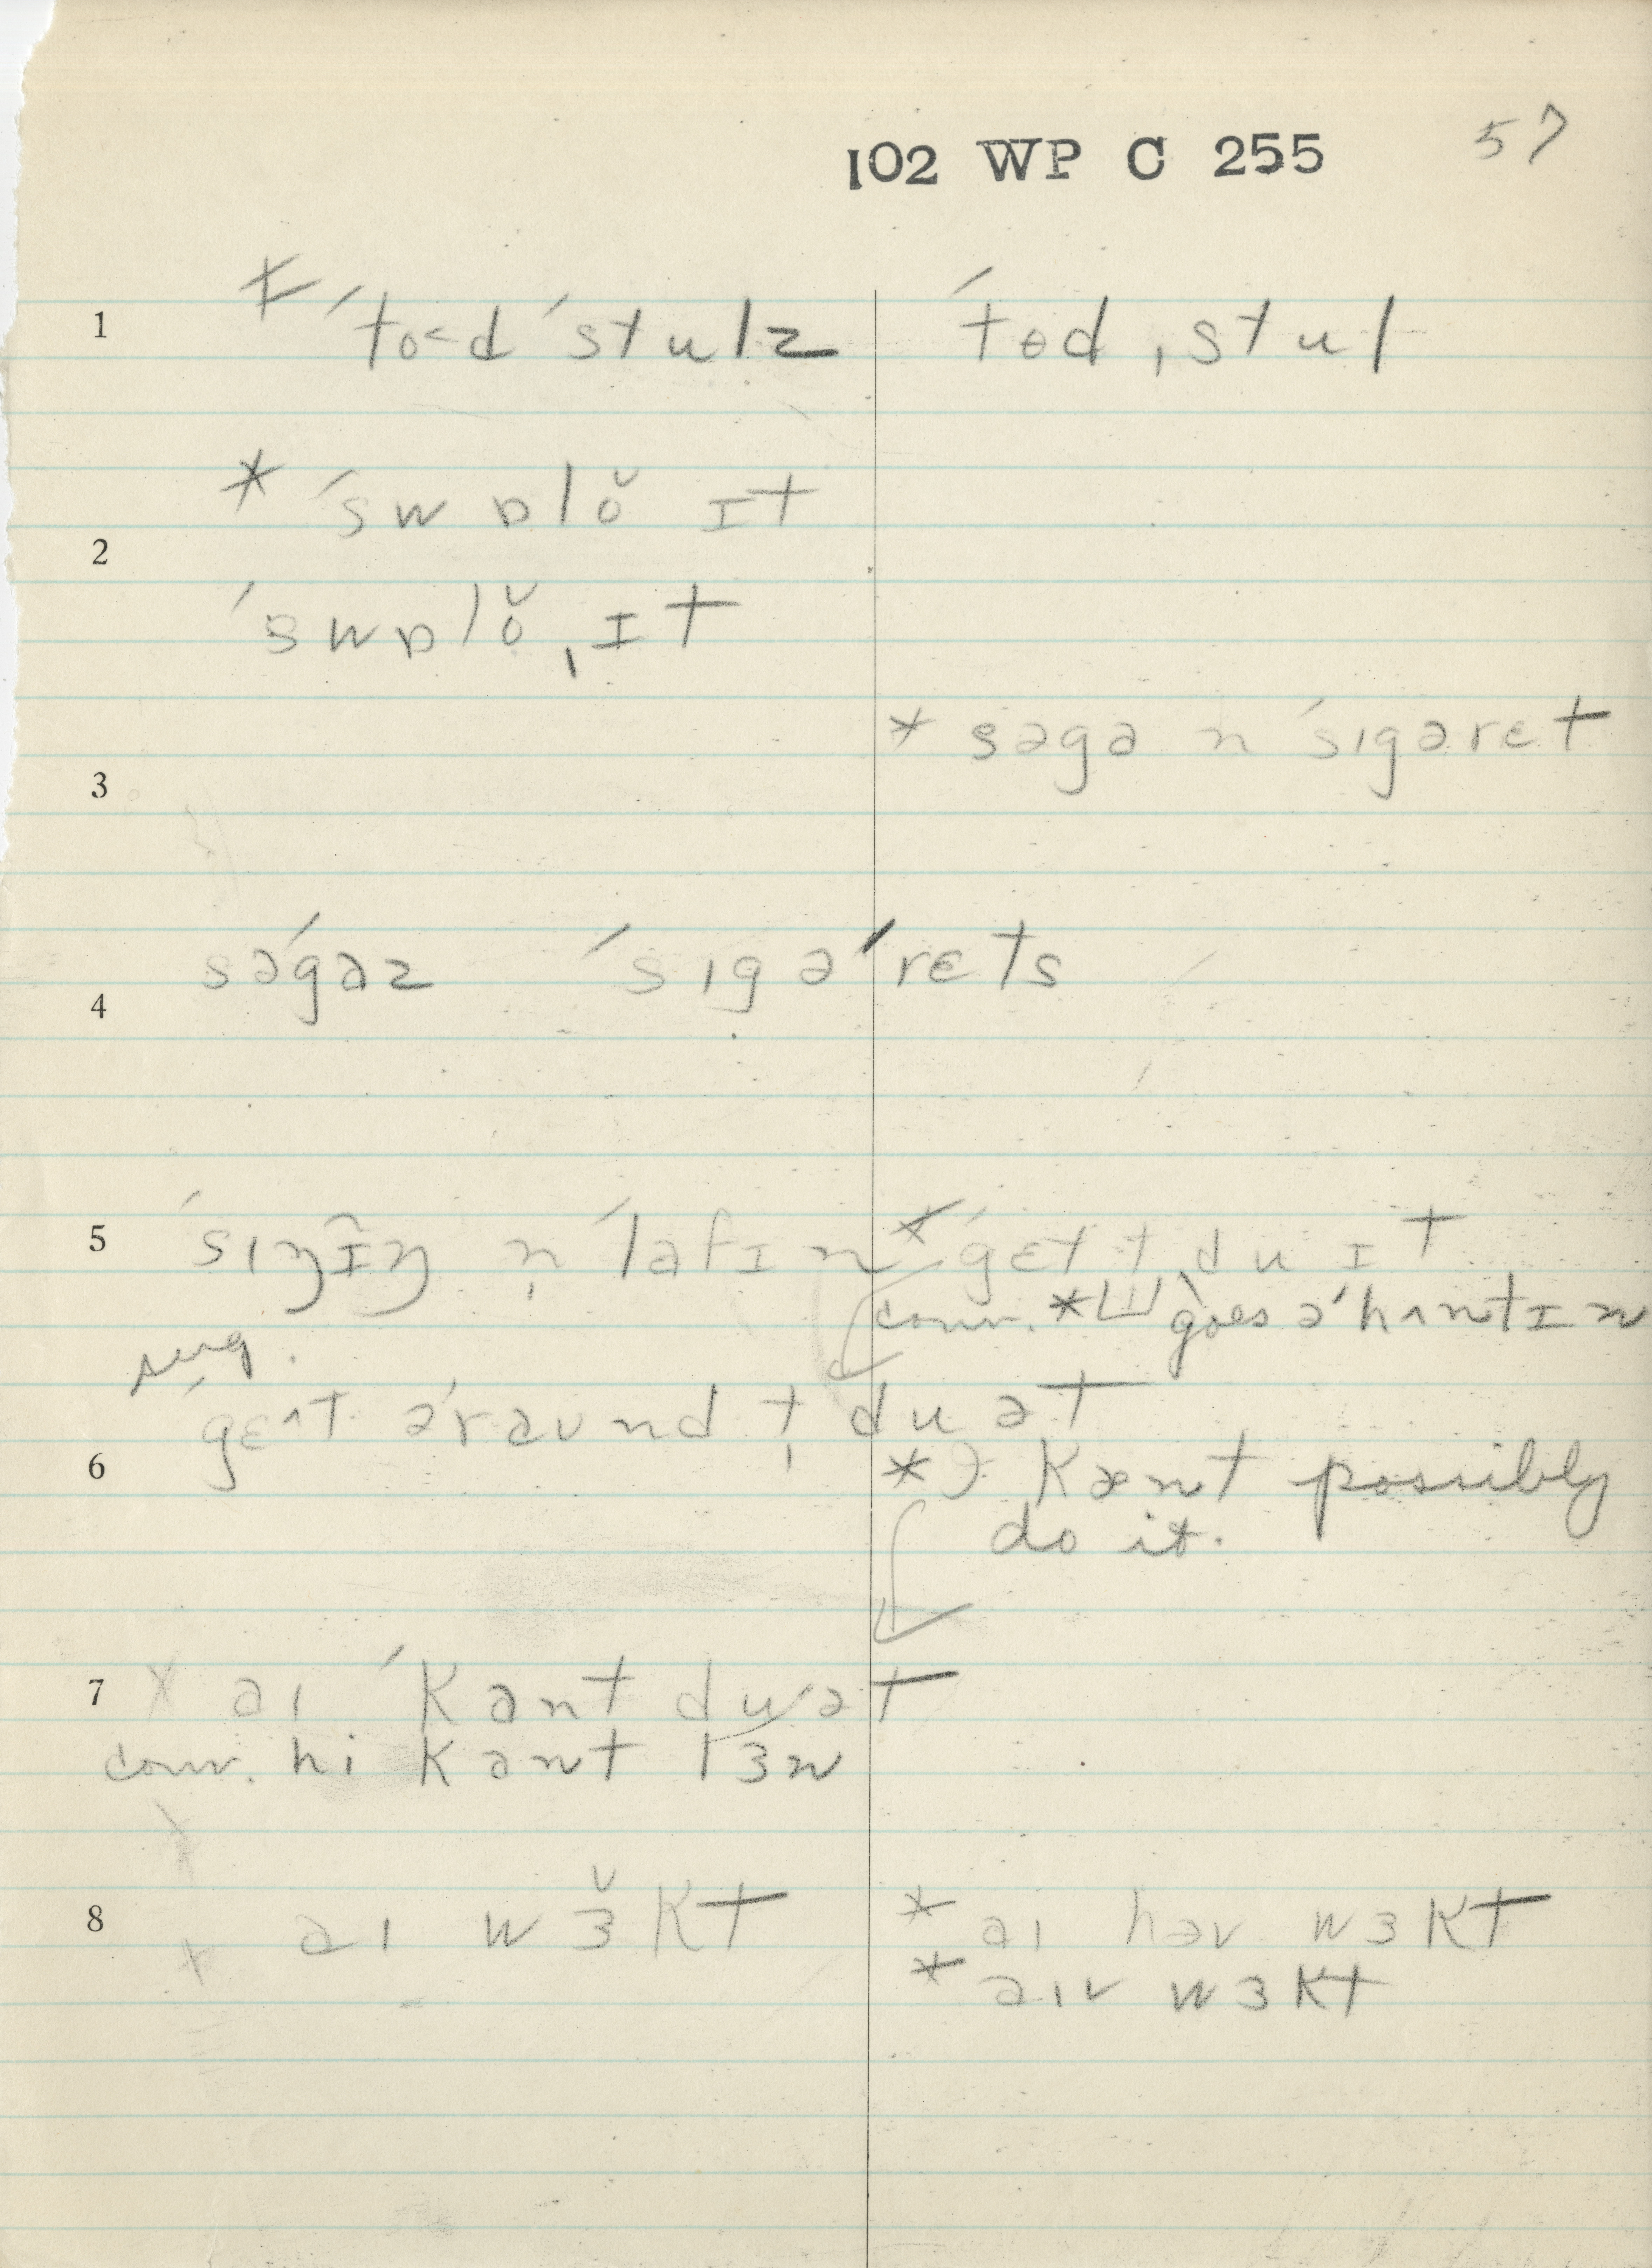 102 WP C 255 57
1 * ˈto<d ˈstulz ˈtɵd ˌstul
* ˈswɒlŏ ɪt
2
ˈswɒlŏ ˌɪt
* səgɑ n ˈsɪgəret
3
səˈgɑz ˈsɪgəˈrɛts
4
5 ˈsɪŋɪ̃ŋ n̩ ˈlafɪn * ˈgɛt t du ɪt
conv. * goes əˈhʌntɪn
sug.
ˈgɛʌt əˈraund t̩ du ət
6 * Kænt possibly
do it.
7 aɪ ˈKant du ət
conv. hi Kant rɜn
8 aɪ wɜ̆Kt * aɪ həv wɜKt
* aɪv wɜKt